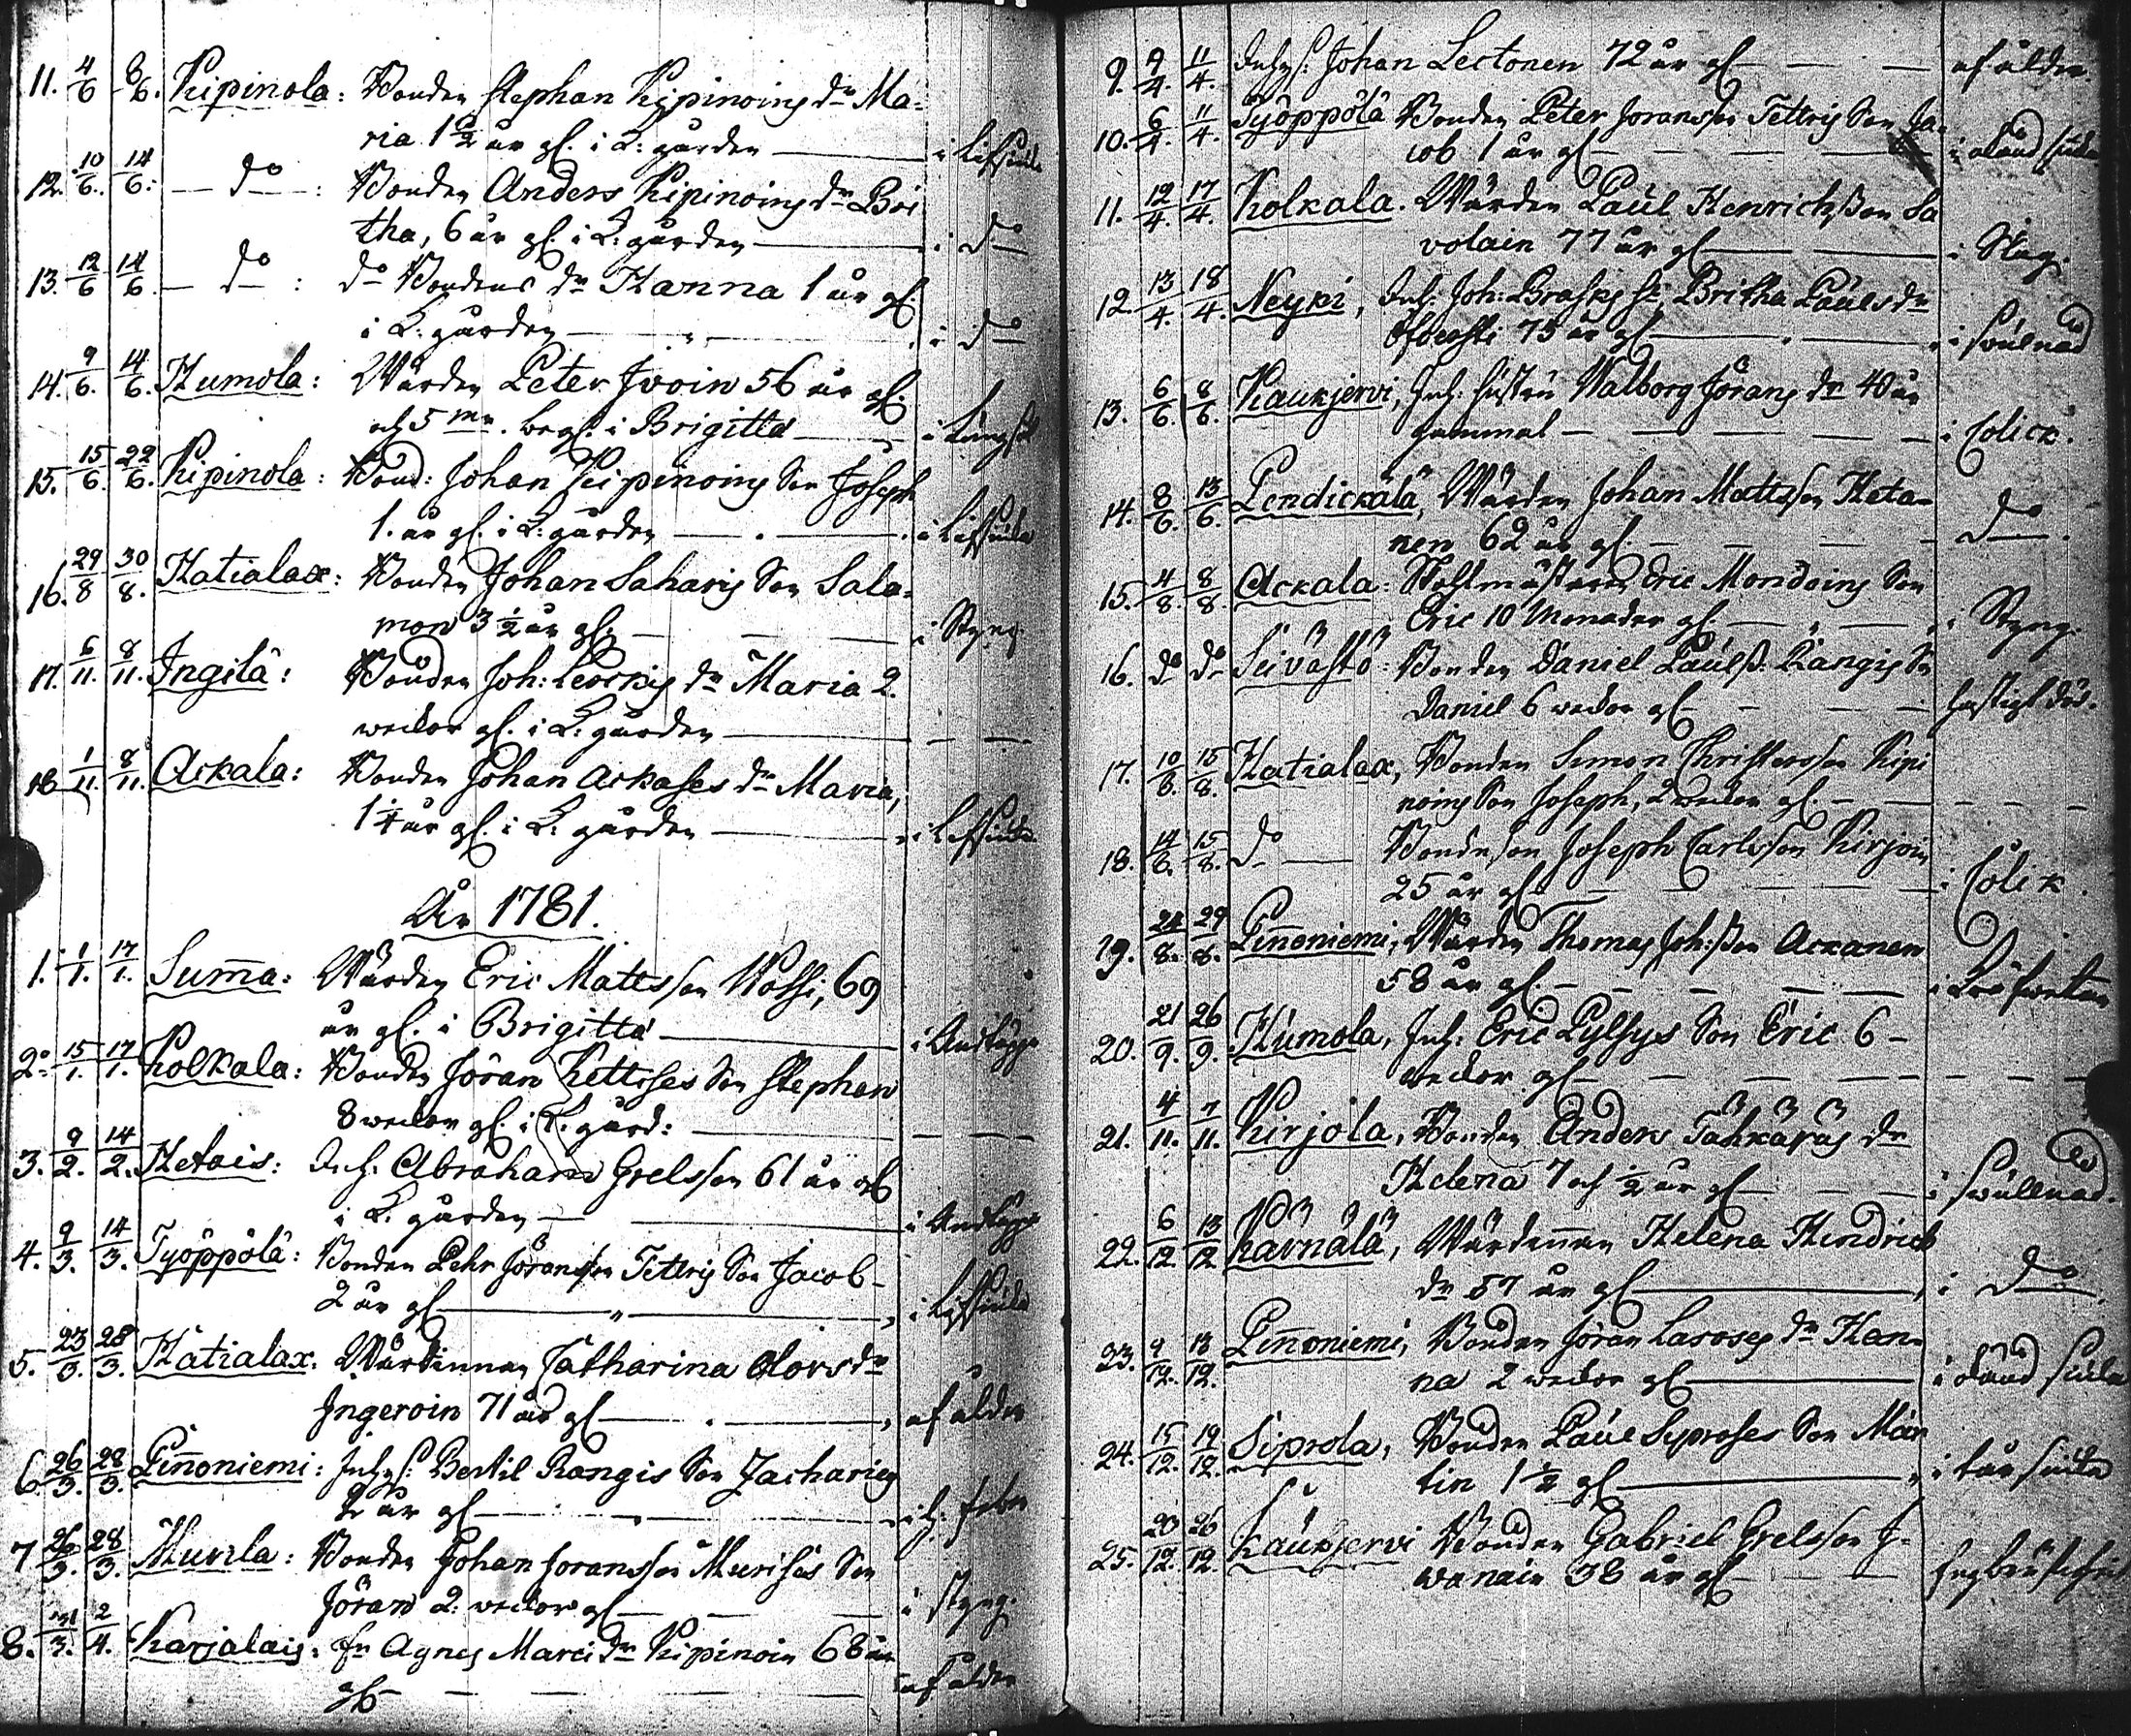 11. 4/6 8/6. Kipinola: Bonden Stephan Kipinoins dr Ma-
ria 1 1/2 år gl. i K: gården — i Lifsiuk
12. 10/6. 14/6: — do — : Bonden Anders Kipinoins dr Bri
tha, 6 år gl. i K: gården — i do
13. 12/6 14/6 — do — : do Bondens dr Hanna 1 år gl.
i K: gården — i do
14. 9/6. 14/6. Humola: Värden Peter Ivoin 56 år gl.
och 5 mr. begr. i Brigitta — i Lungsot
15. 15/6. 22/6. Kipinola: Bond: Johan Kipinoins Son Joseph
1. år gl. i K: gården — i Lifsiuka
16. 29/8 30/8. Hatialax: Bonden Johan Saharis Son Sala-
mon 3 1/2 år gl. — i Styng
17. 6/11. 8/11. Ingilä: Bonden Joh: dr Maria 2.
weckor gl. i K: gården —
18 1/11. 8/11. Ackala: Bonden Johan Ackases dr Maria,
1 1/4 år gl. i K: gården — i Lifsiuka
År 1781.
1. 1/1. 17/1. Suma: Värden Eric Matsson 69
år gl. i Brigitta — i Andtäppa
2. 15/1. 17/1. Kolkala: Bonden Jöran Kettoses Son Stephan
8 weckor gl. i K: gård: —
3. 9/2. 14/2. Hetois: Inh. Abraham Grelsson 61 år gl
i K. gården — i Andtäppa
4. 9/3. 14/3. Työppölä: Bonden Pehr Jöransson Tettris Son Jacob
2 år gl — i Lifsiuka
5. 23/3. 28/3. Hatialax: Värdinnan Catharina Olovsdr
Ingeroin 71 år gl — af ålder
6 26/3. 28/3. Pinoniemi: Inhys: Bertil Rangis Son Zacharias
2 år gl — i h: feber
7 26/3. 28/3. Murila: Bonden Johan Joransson Murises Son
Jöran 2. weckor gl — i styng.
8. 31/3. 2/4. Karjalais: Agnes Marci dr Kipinoin 68 år
gl — af ålder
9. 9/4. 11/4. Inhys: Johan Lectonen 72 år gl — af ålder.
10. 6/4. 11/4. Työppölä Bonden Peter Joransson Tettris Son Ja-
cob 1 år gl — i okänd siuka
11. 12/4. 17/4. Kolkala. Värden Paul Henrichsson Sa
volain 77 år gl — i Styg.
12. 13/4. 18/4. Neyki, Inh: Joh: Braskss: Britha Paulsdr
75 år gl — i swulnad
13. 6/6. 8/6. Kaukjervi, Inh. hustru Walborg Jörans dr 40 år
gammal — i Colick.
14. 8/6. 13/6. Pendickälä, Värden Johan Mattsson Heta-
nen 62 år gl. — do.
15. 4/8. 8/8. Ackala: Eric Mondoins Son
Eric 10 Monader gl. — i Styng.
16. do do Seivästö: Bonden Daniel Paulss. Rangis Sn
Daniel 6 weckor gl — hastigt död.
17. 10/8. 15/8. Hatialax, Bonden Simon Christersson Kipi
noins Son Joseph, 2 weckor gl. —
18. 14/8. 15/8. do — Bondeson Joseph Carlsson Kirjoin
25 år gl — i Colik.
19. 24/8. 29/8. Pinoniemi, Värden Thomas Joh:sson Ackanen
58 år gl — i
20. 21/9. 26/9. Humola, Inh: Eric Pylsys Son Eric 6
weckor gl —
21. 4/11. 7/11. Kirjola, Bonden Anders Tähkäpäs dr
Helena 7 och 1/2 år gl — i swullnad.
22. 6/12. 13/12 Kärnälä, Värdinnan Helena Hindrich
dr 57 år gl — i do
23. 9/12. 13/12. Pinoniemi, Bonden Jöran Lasoses dr Han-
na 2 weckor gl — i okänd siuka
24. 15/12. 19/12. Siprola, Bonden Paul Syproses Son Mår
tin 1 1/2 gl — i siuka
25. 20/12. 26/12. Kaukjervi Bonden Gabriel Grelsson I-
wanain 38 år gl —